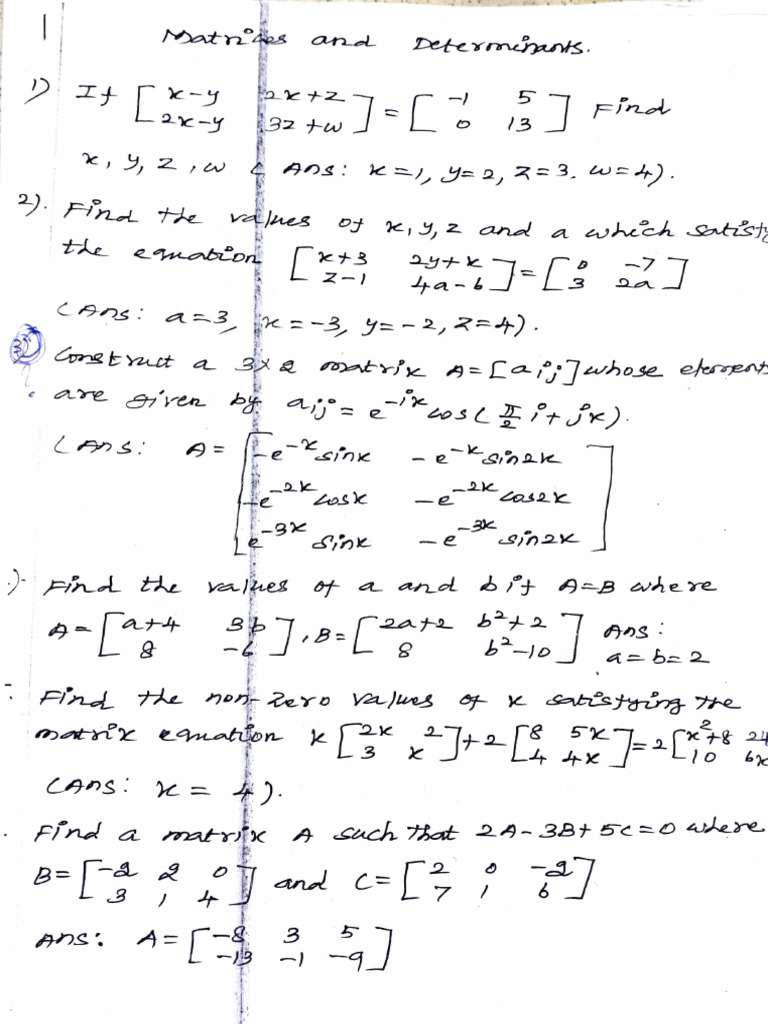 1
Matrices and Determinants.
1) If [ x-y 2x+z ] = [ -1 5 ] Find
[ 2x-y 3z+w ] [ 0 13 ]
x, y, z, w ( Ans: x=1, y=2, z=3. w=4).
2). Find the values of x, y, z and a which satisfy
the equation [ x+3 2y+x ] = [ 0 -7 ]
[ z-1 4a-6 ] [ 3 2a ]
(Ans: a=3, x=-3, y=-2, z=4).
3) Construct a 3x2 matrix A=[aij] whose elements
are given by aij = e^-ix cos(π/2 i + jx).
(Ans: A = [ -e^-x sinx -e^-x sin2x ]
[ -e^-2x cosx -e^-2x cos2x ]
[ e^-3x sinx -e^-3x sin2x ]
.)- Find the values of a and b if A=B where
A = [ a+4 3b ], B = [ 2a+2 b²+2 ] Ans:
[ 8 -6 ] [ 8 b²-10 ] a=b=2
Find the non-zero values of x satisfying the
matrix equation x [ 2x 2 ] + 2 [ 8 5x ] = 2 [ x²+8 24
[ 3 x ] [ 4 4x ] [ 10 6x
(Ans: x = 4).
. Find a matrix A such that 2A-3B+5C=0 where
B = [ -2 2 0 ] and C = [ 2 0 -2 ]
[ 3 1 4 ] [ 7 1 6 ]
Ans: A = [ -8 3 5 ]
[ -13 -1 -9 ]